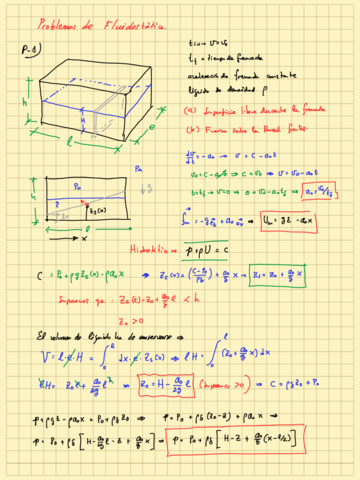 Problemas de Fluidostática
P-1)
t=0 → v=v₀
t_f = tiempo de frenada
aceleración de frenada constante
líquido de densidad ρ
(a) Superficie libre durante la frenada
(b) Fuerza sobre la pared frontal
h
H
l
e
dv/dt = -a₀ → v = C - a₀t
v₀ = C - a₀·0 → C = v₀ → v = v₀ - a₀t
t=t_f → v=0 → 0 = v₀ - a₀t_f → a₀ = v₀/t_f
P_a
P_a
h
z_s(x)
g
l
x
→ U_m = gz - a₀x
Hidrostática → p + ρU = C
C = P_a + ρg z_s(x) - ρa₀x → z_s(x) = (C-P_a)/ρg + a₀/g x → z_s = z₀ + a₀/g x
Supongamos que : z_s(l) = z₀ + a₀/g l < h
z₀ > 0
El volumen de líquido ha de conservarse ⇒
V = l·e·H = ∫₀^l dx·e·z_s(x) ⇒ lH = ∫₀^l (z₀ + a₀/g x) dx
lH = z₀l + a₀/2g l² ⇒ z₀ = H - a₀/2g l (Supone >0) ⇒ C = ρgz₀ + P_a
p + ρgz - ρa₀x = P_a + ρgz₀ ⇒ p = P_a + ρg (z₀-z) + ρa₀x ⇒
p = P_a + ρg [H - a₀/2g l - z + a₀/g x] ⇒ p = P_a + ρg [H - z + a₀/g (x - l/2)]